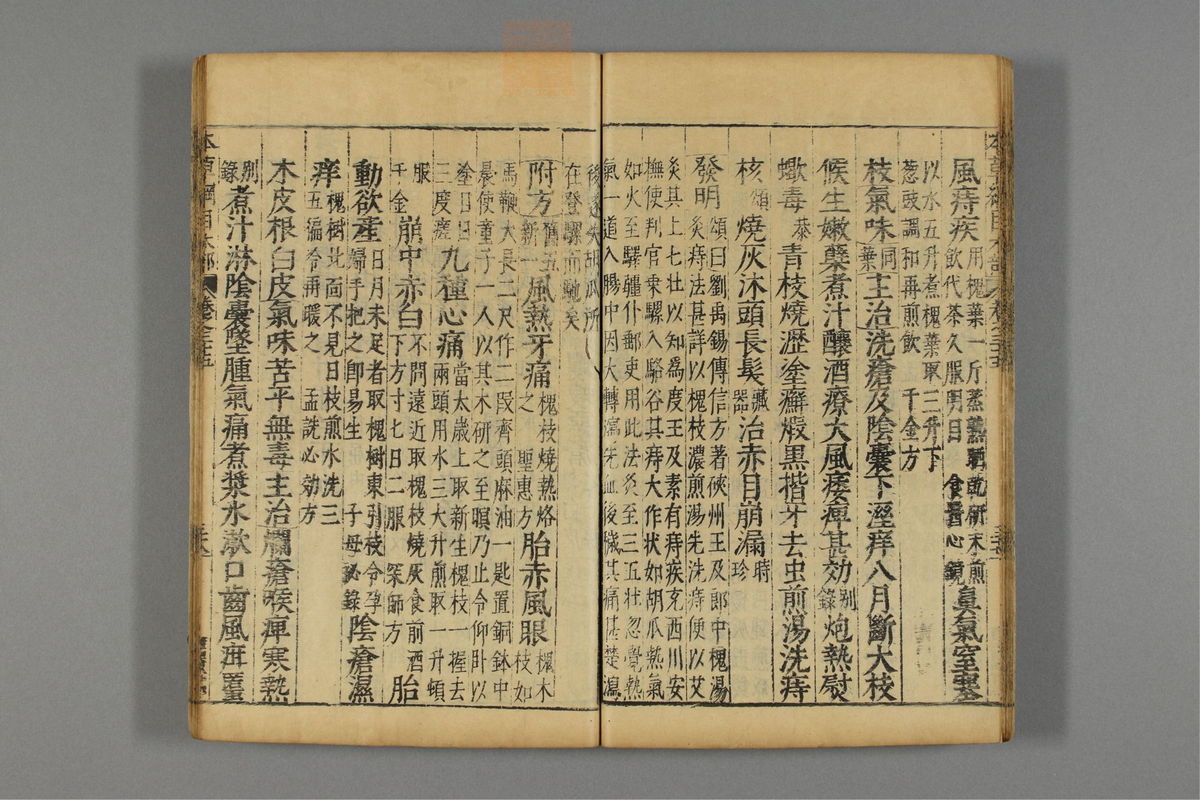 風痔疾 用槐葉一斤蒸熟晒乾研末煎
飲代茶久服明目 食醫心鏡 鼻氣窒塞
以水五升煮槐葉取三升下
葱豉調和再煎飲 千金方
枝氣味同葉主治洗瘡及陰囊下溼痒八月斷大枝
候生嫩蘗煮汁釀酒療大風痿痺甚効别錄炮熱熨
蠍毒恭青枝燒瀝塗癬煅黑揩牙去虫煎湯洗痔
核頌燒灰沐頭長髮藏器治赤目崩漏時珍
發明頌曰劉禹錫傳信方著硤州王及郎中槐湯
灸痔法甚詳以槐枝濃煎湯先洗痔便以艾
炙其上七壯以知爲度王及素有痔疾充西川安
撫使判官乗騾入駱谷其痔大作状如胡瓜熱氣
如火至驛殭仆郵吏用此法灸至三五壮忽覺熱
氣一道入腸中因大轉瀉先血後穢其痛甚楚瀉
後遂失胡瓜所
在登騾而馳矣
附方舊五新一風熱牙痛槐枝燒熱烙之 聖惠方胎赤風眼槐木枝如
馬鞭大長二尺作二叚齊頭麻油一匙置銅鉢中
晨使童子一人以其木研之至暝乃止令仰卧以
塗日日三度瘥九種心痛當太歲上取新生槐枝一握去兩頭用水三大升煎取一升頓
服千金崩中赤白不問遠近取槐枝燒灰食前酒下方寸七日二服 深師方胎
動欲產日月未足者取槐樹東引枝令孕婦手把之卽易生 子母祕錄陰瘡濕
痒槐樹北面不見日枝煎水洗三五徧令再暖之 孟詵必効方
木皮根白皮氣味苦平無毒主治爛瘡喉痺寒熱
别錄煮汁淋陰囊墜腫氣痛煮漿水漱口齒風疳䘌
本草綱目木部 卷之三十五